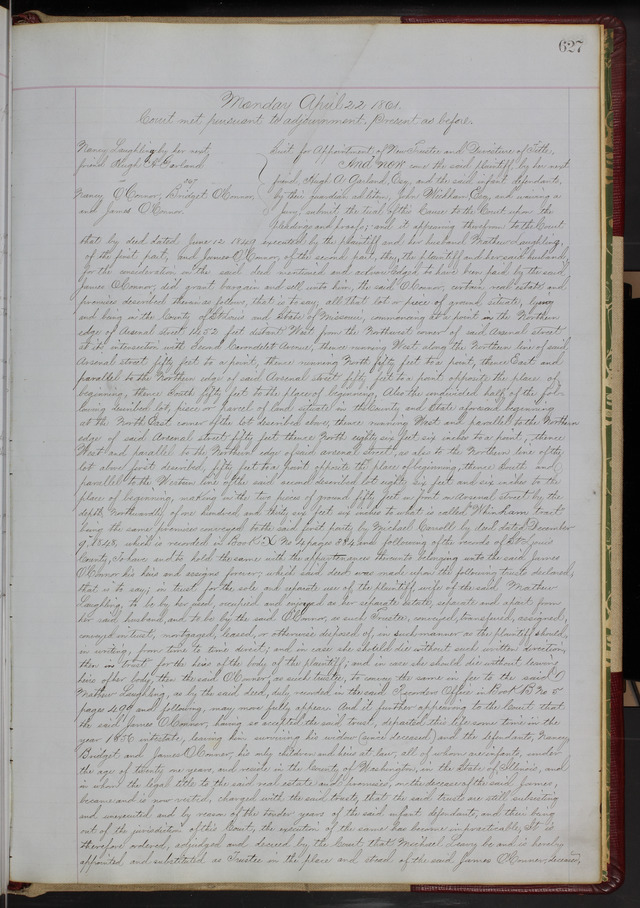 627
Monday April 22 1861.
Court met pursuant to adjournment. Present as before.
Nancy Laughling by her next
friend Hugh A. Garland
vs
Nancy O'Connor, Bridget O'Connor,
and James O'Connor.
Suit for Appointment, of New Trustee and Divestiture of Title.
And now come the said plaintiff, by her next
friend, Hugh A. Garland, Esq, and the said infant defendants,
by their guardian ad litem, John Wickham Esq, and waiving a
jury, submit the trial of this Cause to the Court upon the
Pleadings and proofs; and it appearing therefrom to the Court
that by deed dated June 12 1849 executed by the plaintiff and her husband Mathew Laughling,
of the first part, and James O'Connor, of the second part, they, the plaintiff and her said husband,
for the consideration in the said deed mentioned and acknowledged to have been paid by the said
James O'Connor, did grant bargain and sell unto him, the said O'Connor, certain real estate and
premises described therein as follows, that is to say, all that lot or piece of ground situate, lying
and being in the County of St Louis and State of Missouri, commencing at a point in the Northern
edge of Arsenal street 1452 feet distant West from the Northwest corner of said Arsenal street
at its intersection with Second Carondelet Avenue, thence running West along the Northern line of said
Arsenal street fifty feet to a point, thence running North fifty feet to a point, thence East and
parallel to the Northern edge of said Arsenal street fifty feet to a point opposite the place of
beginning, thence South fifty feet to the place of beginning, Also the undivided half of the fol-
lowing described lot, piece or parcel of land situate in the County and State aforesaid beginning
at the North East corner of the lot described above, thence running West and parallel to the Northern
edge of said Arsenal street fifty feet thence North eighty six feet six inches to a point, thence
West and parallel to the Northern edge of said arsenal street, as also to the Northern line of the
lot above first described, fifty feet to a point opposite the place of beginning, thence South and
parallel to the Western line of the said second described lot eighty six feet and six inches to the
place of beginning, making in the two pieces of ground fifty feet in front on Arsenal street by the
depth Northwardly of one hundred and thirty six feet six inches to what is called Windham tract
being the same premises conveyed to the said first party by Michael Carroll by deed dated December
9" 1848, which is recorded in Book No 4 pages 384 and following of the records of St Louis
County, To have and to hold the same with the appurtenances thereunto belonging unto the said James
O'Connor his heirs and assigns forever; which said deed was made upon the following trusts declared,
that is to say; in trust for the sole and separate use of the plaintiff, wife of the said Mathew
Laughling, to be by her used, occupied and enjoyed as her separate estate, separate and apart from
her said husband, and to be by the said O'Connor, as such Trustee, conveyed, transferred, assigned,
conveyed in trust, mortgaged, leased, or otherwise disposed of, in such manner as the plaintiff should,
in writing, from time to time direct; and in case she should die without such written direction,
then in trust for the heirs of the body of the plaintiff; and in case she should die without leaving
heirs of her body, then the said O'Connor, as such trustee, to convey the same in fee to the said
Mathew Laughling, as by the said deed, duly recorded in the said Recorders Office in Book No 5
pages 499 and following, may more fully appear. And it further appearing to the Court that
the said James O'Connor, having so accepted the said trust, departed this life some time in the
year 1856 intestate, leaving him surviving his widow (since deceased) and the defendants, Nancy,
Bridget and James O'Connor, his only children and heirs at law, all of whom are infants, under
the age of twenty one years, and reside in the County of Washington, in the State of Illinois, and
in whom the legal title to the said real estate and premises, on the decease of the said James,
became and is now vested, charged with the said trusts, that the said trusts are still subsisting
and unexecuted and by reason of the tender years of the said infant defendants, and their being
out of the jurisdiction of this Court, the execution of the same has become impracticable, It is
therefore ordered, adjudged and decreed by the Court that Michael Leary be and is hereby
appointed, and substituted as Trustee in the place and stead of the said James O'Connor, deceased,